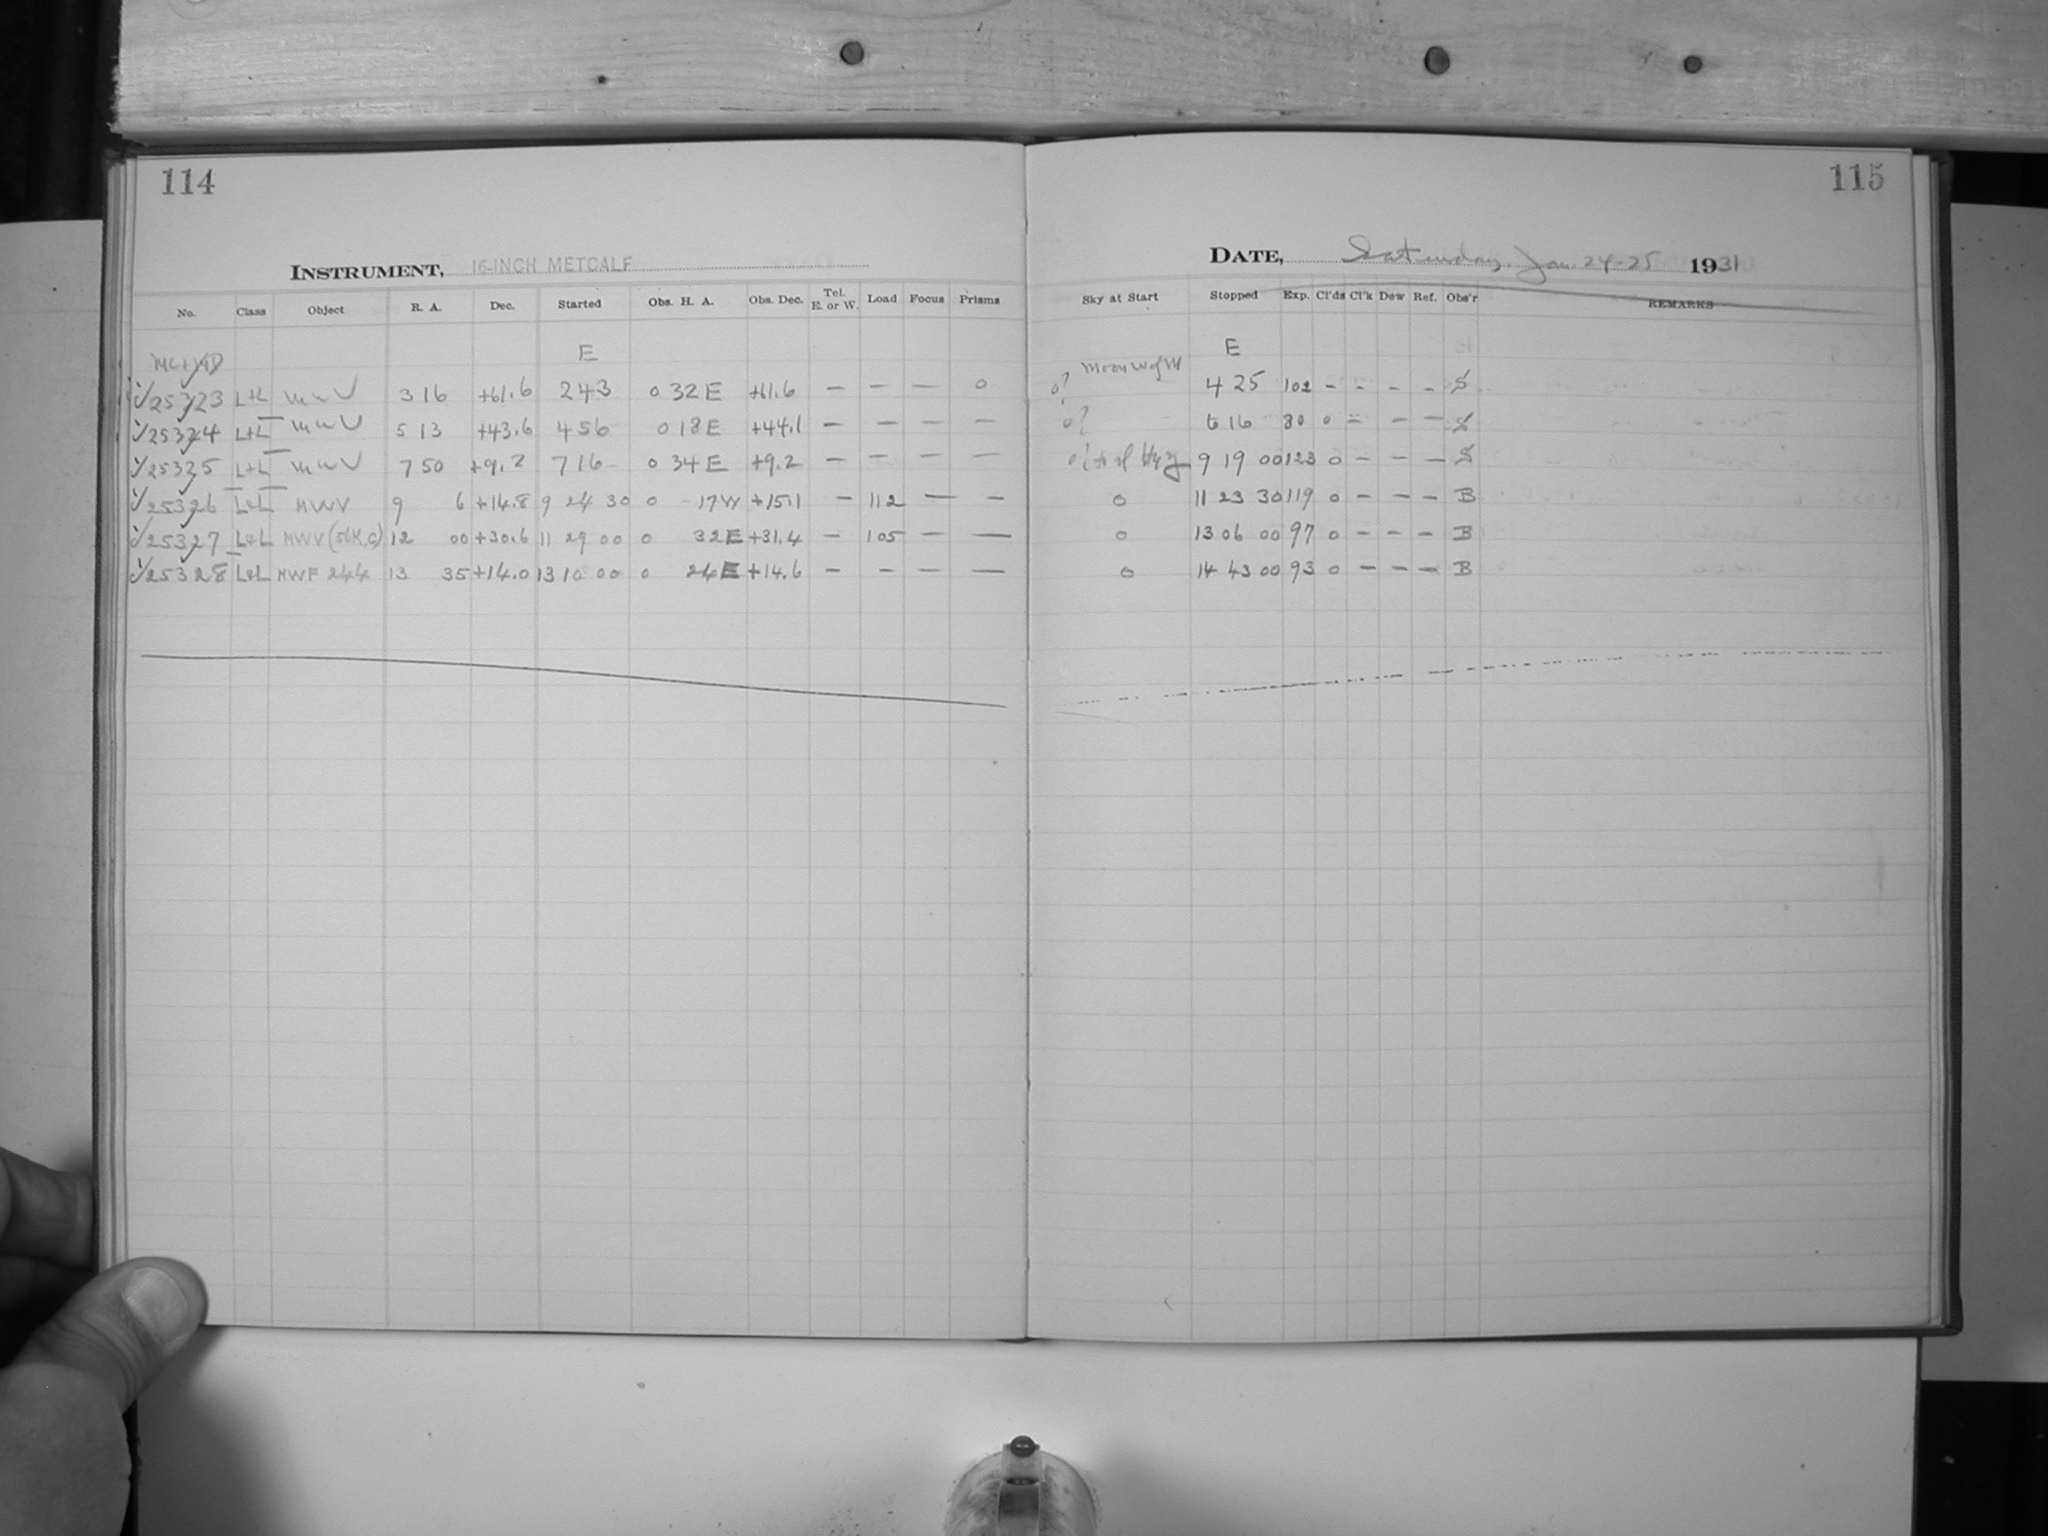 114
INSTRUMENT, 16-INCH METCALF
No. Class Object R. A. Dec. Started Obs. H. A. Obs. Dec. Tel. E. or W. Load Focus Prisms
E
25323 L+L MWV 3 16 +61.6 2 43 0 32 E +61.6 — — — 0
25324 L+L MWV 5 13 +43.6 4 56 0 18 E +44.1 — — — —
25325 L+L MWV 7 50 +9.2 7 16 0 34 E +9.2 — — — —
25326 L+L MWV 9 6 +14.8 9 24 30 0 17 W +15.1 — 112 — —
25327 L+L MWV (56M,C) 12 00 +30.6 11 29 00 0 32 E +31.4 — 105 — —
25328 L+L MWF 244 13 35 +14.0 13 10 00 0 24 E +14.6 — — — —
115
DATE, Saturday, Jan. 24-25 1931
Sky at Start Stopped Exp. Cl'ds Cl'k Dew Ref. Obs'r REMARKS
E
Moon W of M
0? 4 25 102 – – – – S
0? 6 16 80 0 – – – S
9 19 00 123 0 – – – S
0 11 23 30 119 0 – – – B
0 13 06 00 97 0 – – – B
0 14 43 00 93 0 – – – B